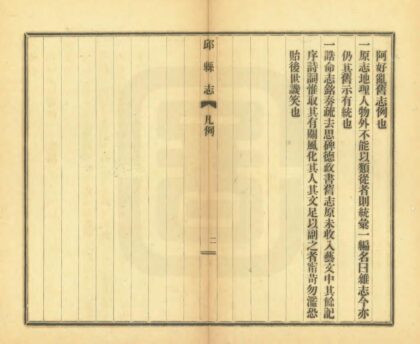 阿好亂舊志例也
一原志地理人物外不能以類從者則統彙一編名曰雜志今亦
仍其舊示有統也
一誥命志銘奏疏去思碑德政書舊志原未收入藝文中其餘記
序詩詞惟取其有關風化其人其文足以副之者甯苛勿濫恐
貽後世譏笑也
邱縣志
凡例
二